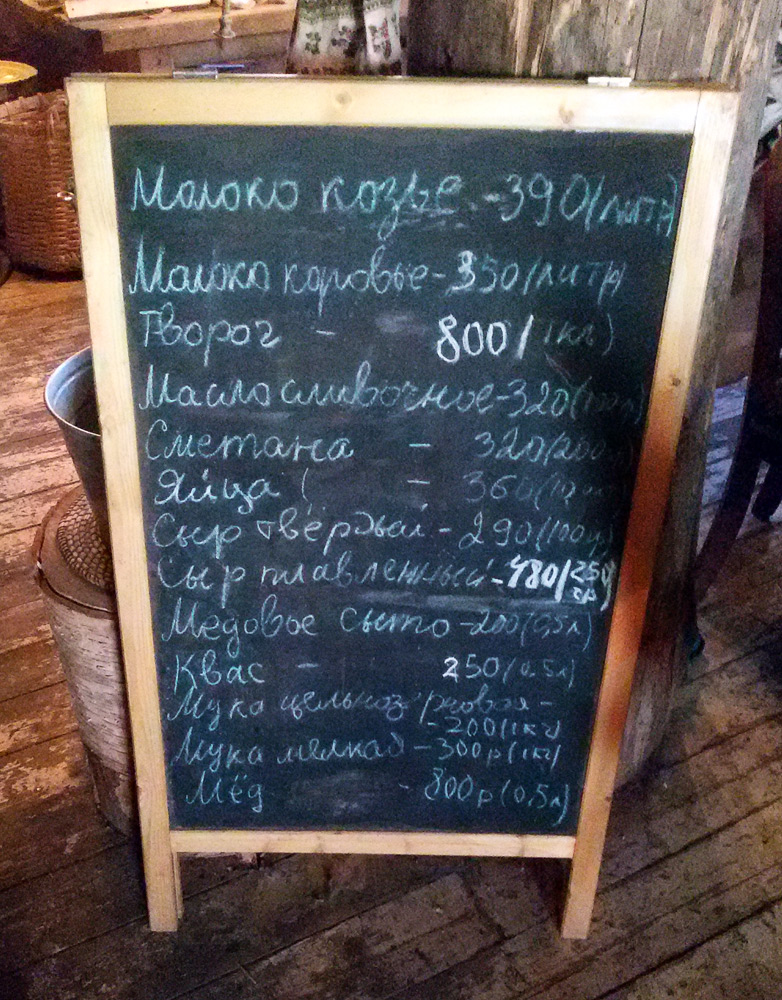 Молоко козье - 390 (литр)
Молоко коровье - 350 (литр)
Творог - 800 / 1кг)
Масло сливочное - 320 (
Сметана - 320 (200
Яйца ( - 360 (10
Сыр твёрдый - 290 (100
Сыр плавленный - 480 / 250
гр)
Медовое сыто - 200 (0,5л)
Квас - 250 (0.5л)
Мука цельнозерновая -
- 200 (1кг)
Мука мелкая - 300р (1кг)
Мёд - 800р (0,5л)